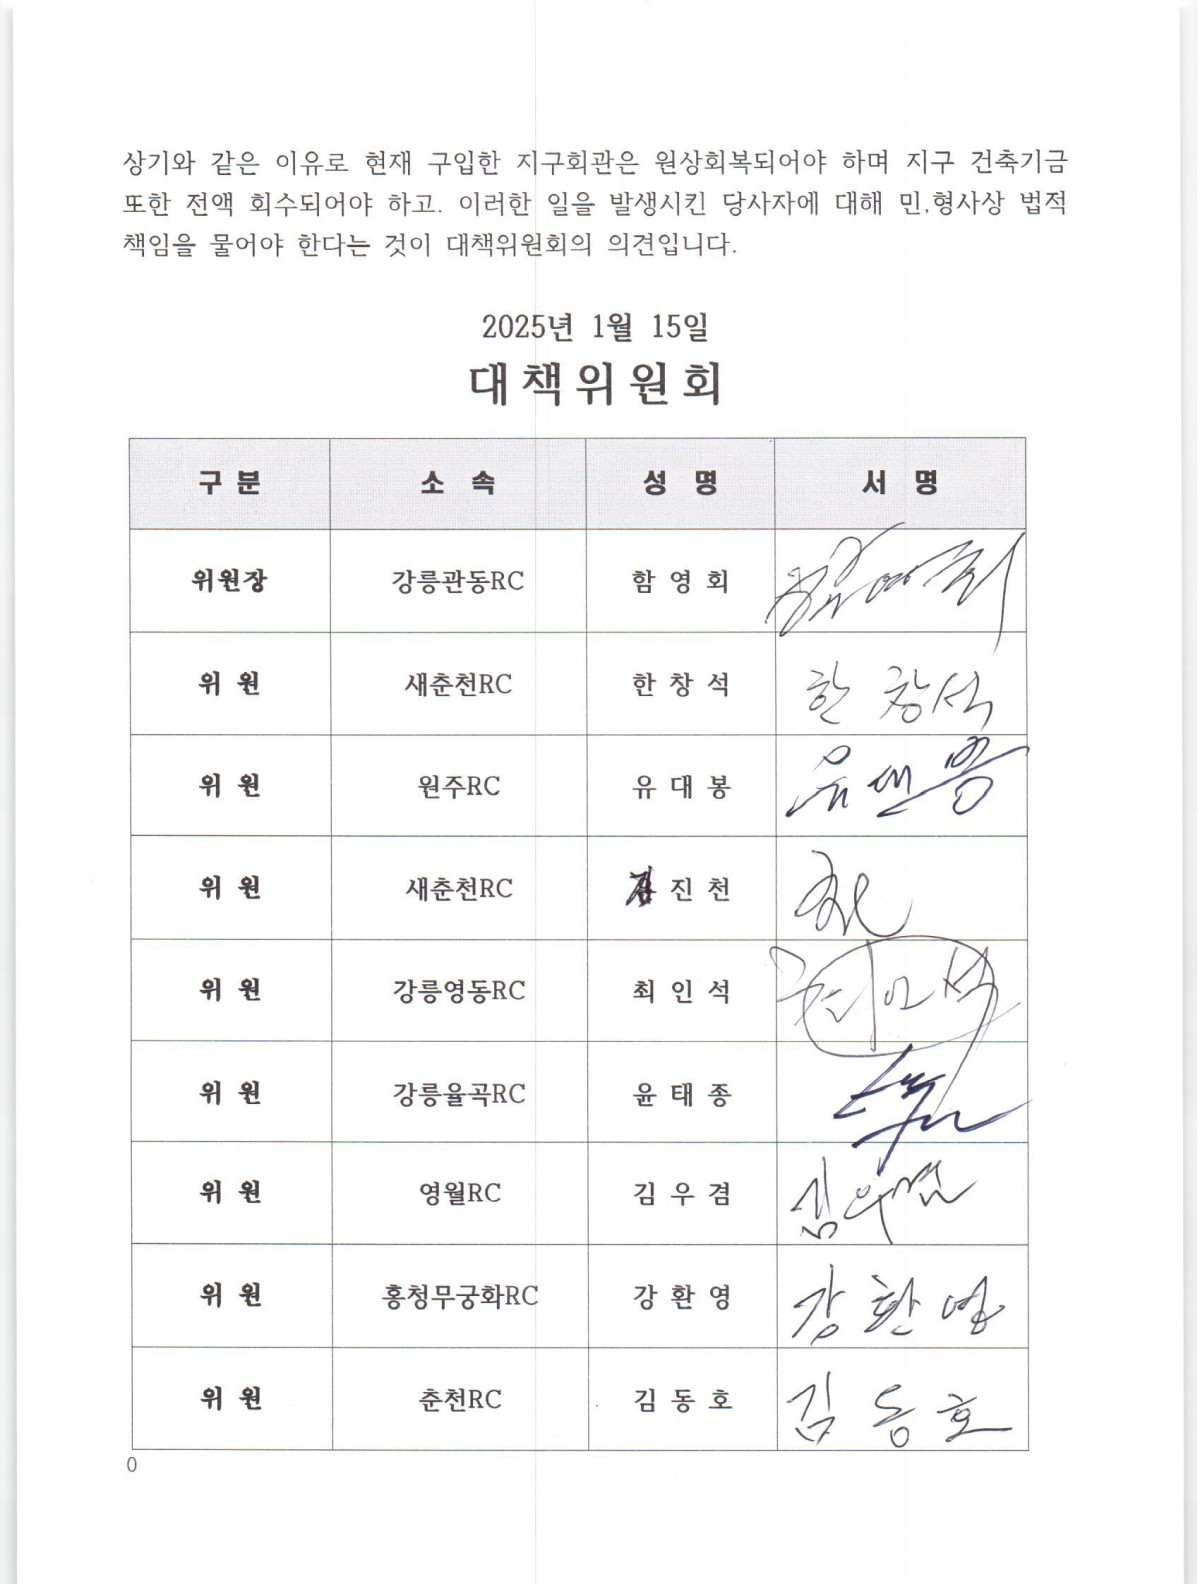 상기와 같은 이유로 현재 구입한 지구회관은 원상회복되어야 하며 지구 건축기금
또한 전액 회수되어야 하고. 이러한 일을 발생시킨 당사자에 대해 민,형사상 법적
책임을 물어야 한다는 것이 대책위원회의 의견입니다.
2025년 1월 15일
대책위원회
구 분 소 속 성 명 서 명
위원장 강릉관동RC 함 영 회
위 원 새춘천RC 한 창 석 한 창 석
위 원 원주RC 유 대 봉 유 대 봉
위 원 새춘천RC 진 천
위 원 강릉영동RC 최 인 석 최 인 석
위 원 강릉율곡RC 윤 태 종
위 원 영월RC 김 우 겸 김 우 겸
위 원 홍청무궁화RC 강 환 영 강 환 영
위 원 춘천RC 김 동 호 김 동 호
0